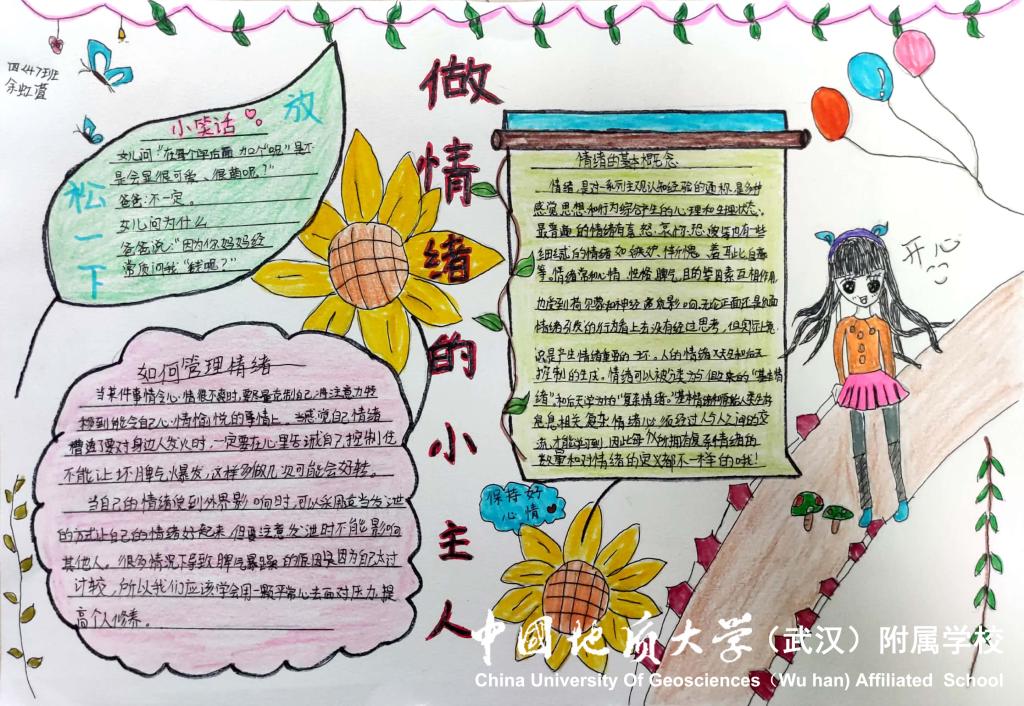 四(4)班
余虹萱
做情绪的小主人
放松一下
小笑话
女儿问"在每个字后面加2个"呢"是不
是会显很可爱、很萌呢?"
爸爸:不一定。
女儿问为什么
爸爸说:"因为你妈妈经
常质问我"钱呢?"
如何管理情绪
当某件事情令心情很不爽时,要尽量克制自己,将注意力转
移到能令自己心情愉悦的事情上。当感觉自己情绪
糟透了要对身边人发火时,一定要在心里告诫自己控制住
不能让坏脾气爆发,这样多做几次可能会好转。
当自己的情绪受到外界影响时,可以采用适当发泄
的方式让自己的情绪好起来,但要注意发泄时不能影响
其他人。很多情况下导致脾气暴躁的原因是因为自己太过
计较,所以我们应该学会用一颗平常心去面对压力,提
高个人修养。
情绪的基本概念
情绪,是对一系列主观认知经验的通称,是多种
感觉、思想和行为综合产生的心理和生理状态、
最普遍的情绪有喜、怒、哀、惊、恐、爱等,也有一些
细腻的情绪如嫉妒、惭愧、羞耻、自豪
等。情绪常和心情、性格、脾气、目的等因素互相作用
也受到荷尔蒙和神经递质影响,无论正面还是负面
情绪引发的行为看上去没有经过思考,但实际上意
识是产生情绪重要的一环。人的情绪又天生和后天
控制的生成。情绪可以被分类为与但以来的"基本情
绪"和后天学习的"复杂情绪"。基本情绪和原始人类生存
息息相关,复杂情绪必须经过人与人之间的交
流才能学习到,因此每个人所拥有复杂情绪的
数量和对情绪的定义都不一样的哦!
开心
保持好
心情
中国地质大学(武汉)附属学校
China University Of Geosciences(Wu han) Affiliated School